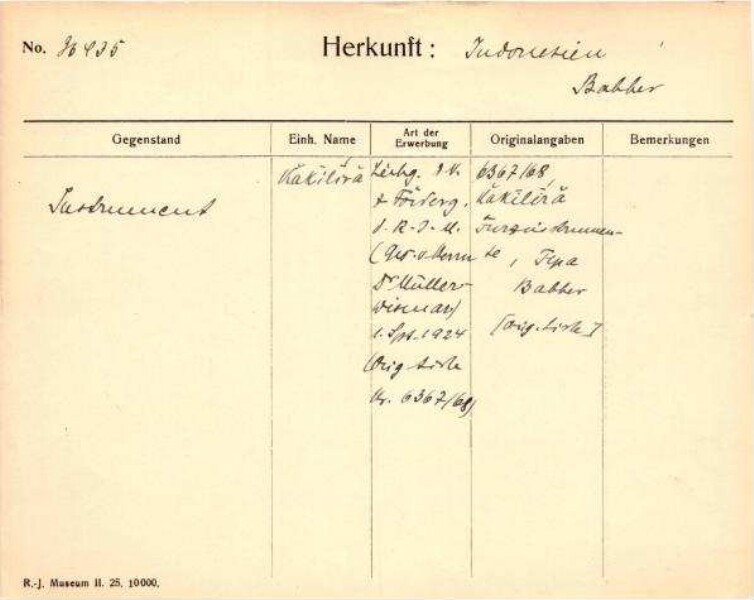 No. 36435 Herkunft: Indonesien
Babber
Gegenstand Einh. Name Art der Erwerbung Originalangaben Bemerkungen
Instrument
Kakilirä
Leihg. d. V.
z Förderg.
d. R-J-M.
(Ges. v. Herrn
Dr Müller-
Wismar)
1. Spt. 1924
(Orig. Liste
Nr. 6367/68)
6367/68,
Kakilirä
Tanzinstrumen-
te, Tepa
Babber
[Orig. Liste]
R.-J. Museum II. 25. 10000.